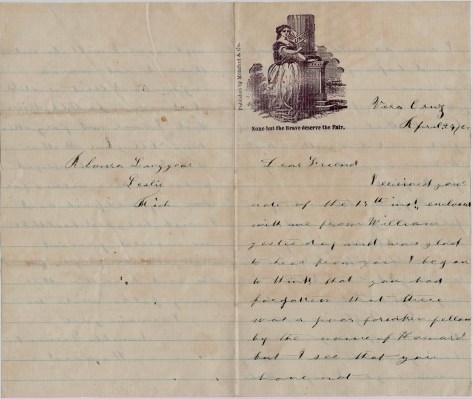 Published by Mumford & Co.
None but the Brave deserve the Fair.
Vera Cruz
April 24
Leslie
Mich
Dear Friend
I received your
note of the 13th inst enclosed
with one from William
yesterday and was glad
to hear from you I began
to think that you had
forgotten that there
was a poor forsaken fellow
by the name of Howard
but I see that you
have not